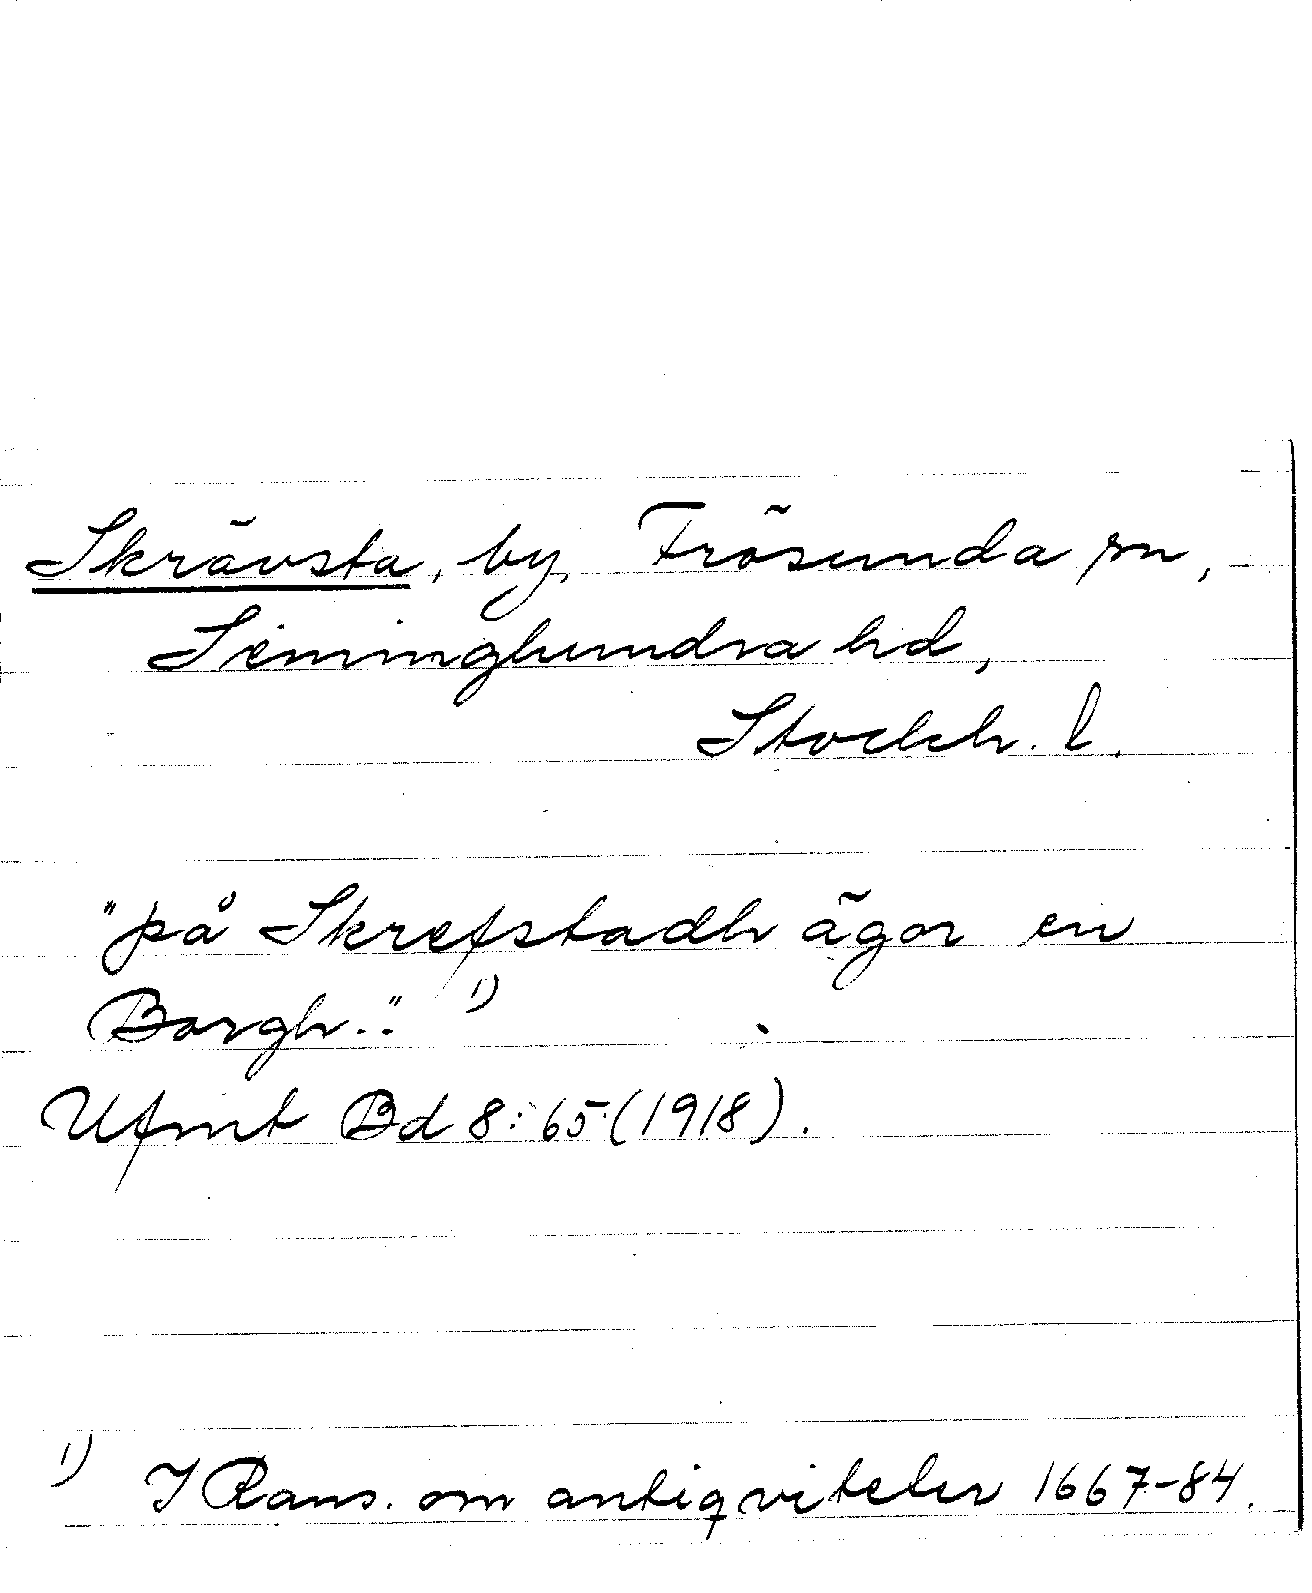 Skrävsta, by, Frösunda sn,
Seminghundra hd,
Stockh. l.
"på Skrefstadh ägor en
Borgh.." 1)
Ufmt Bd 8: 65 (1918).
1) I Rans. om antiqviteter 1667-84.